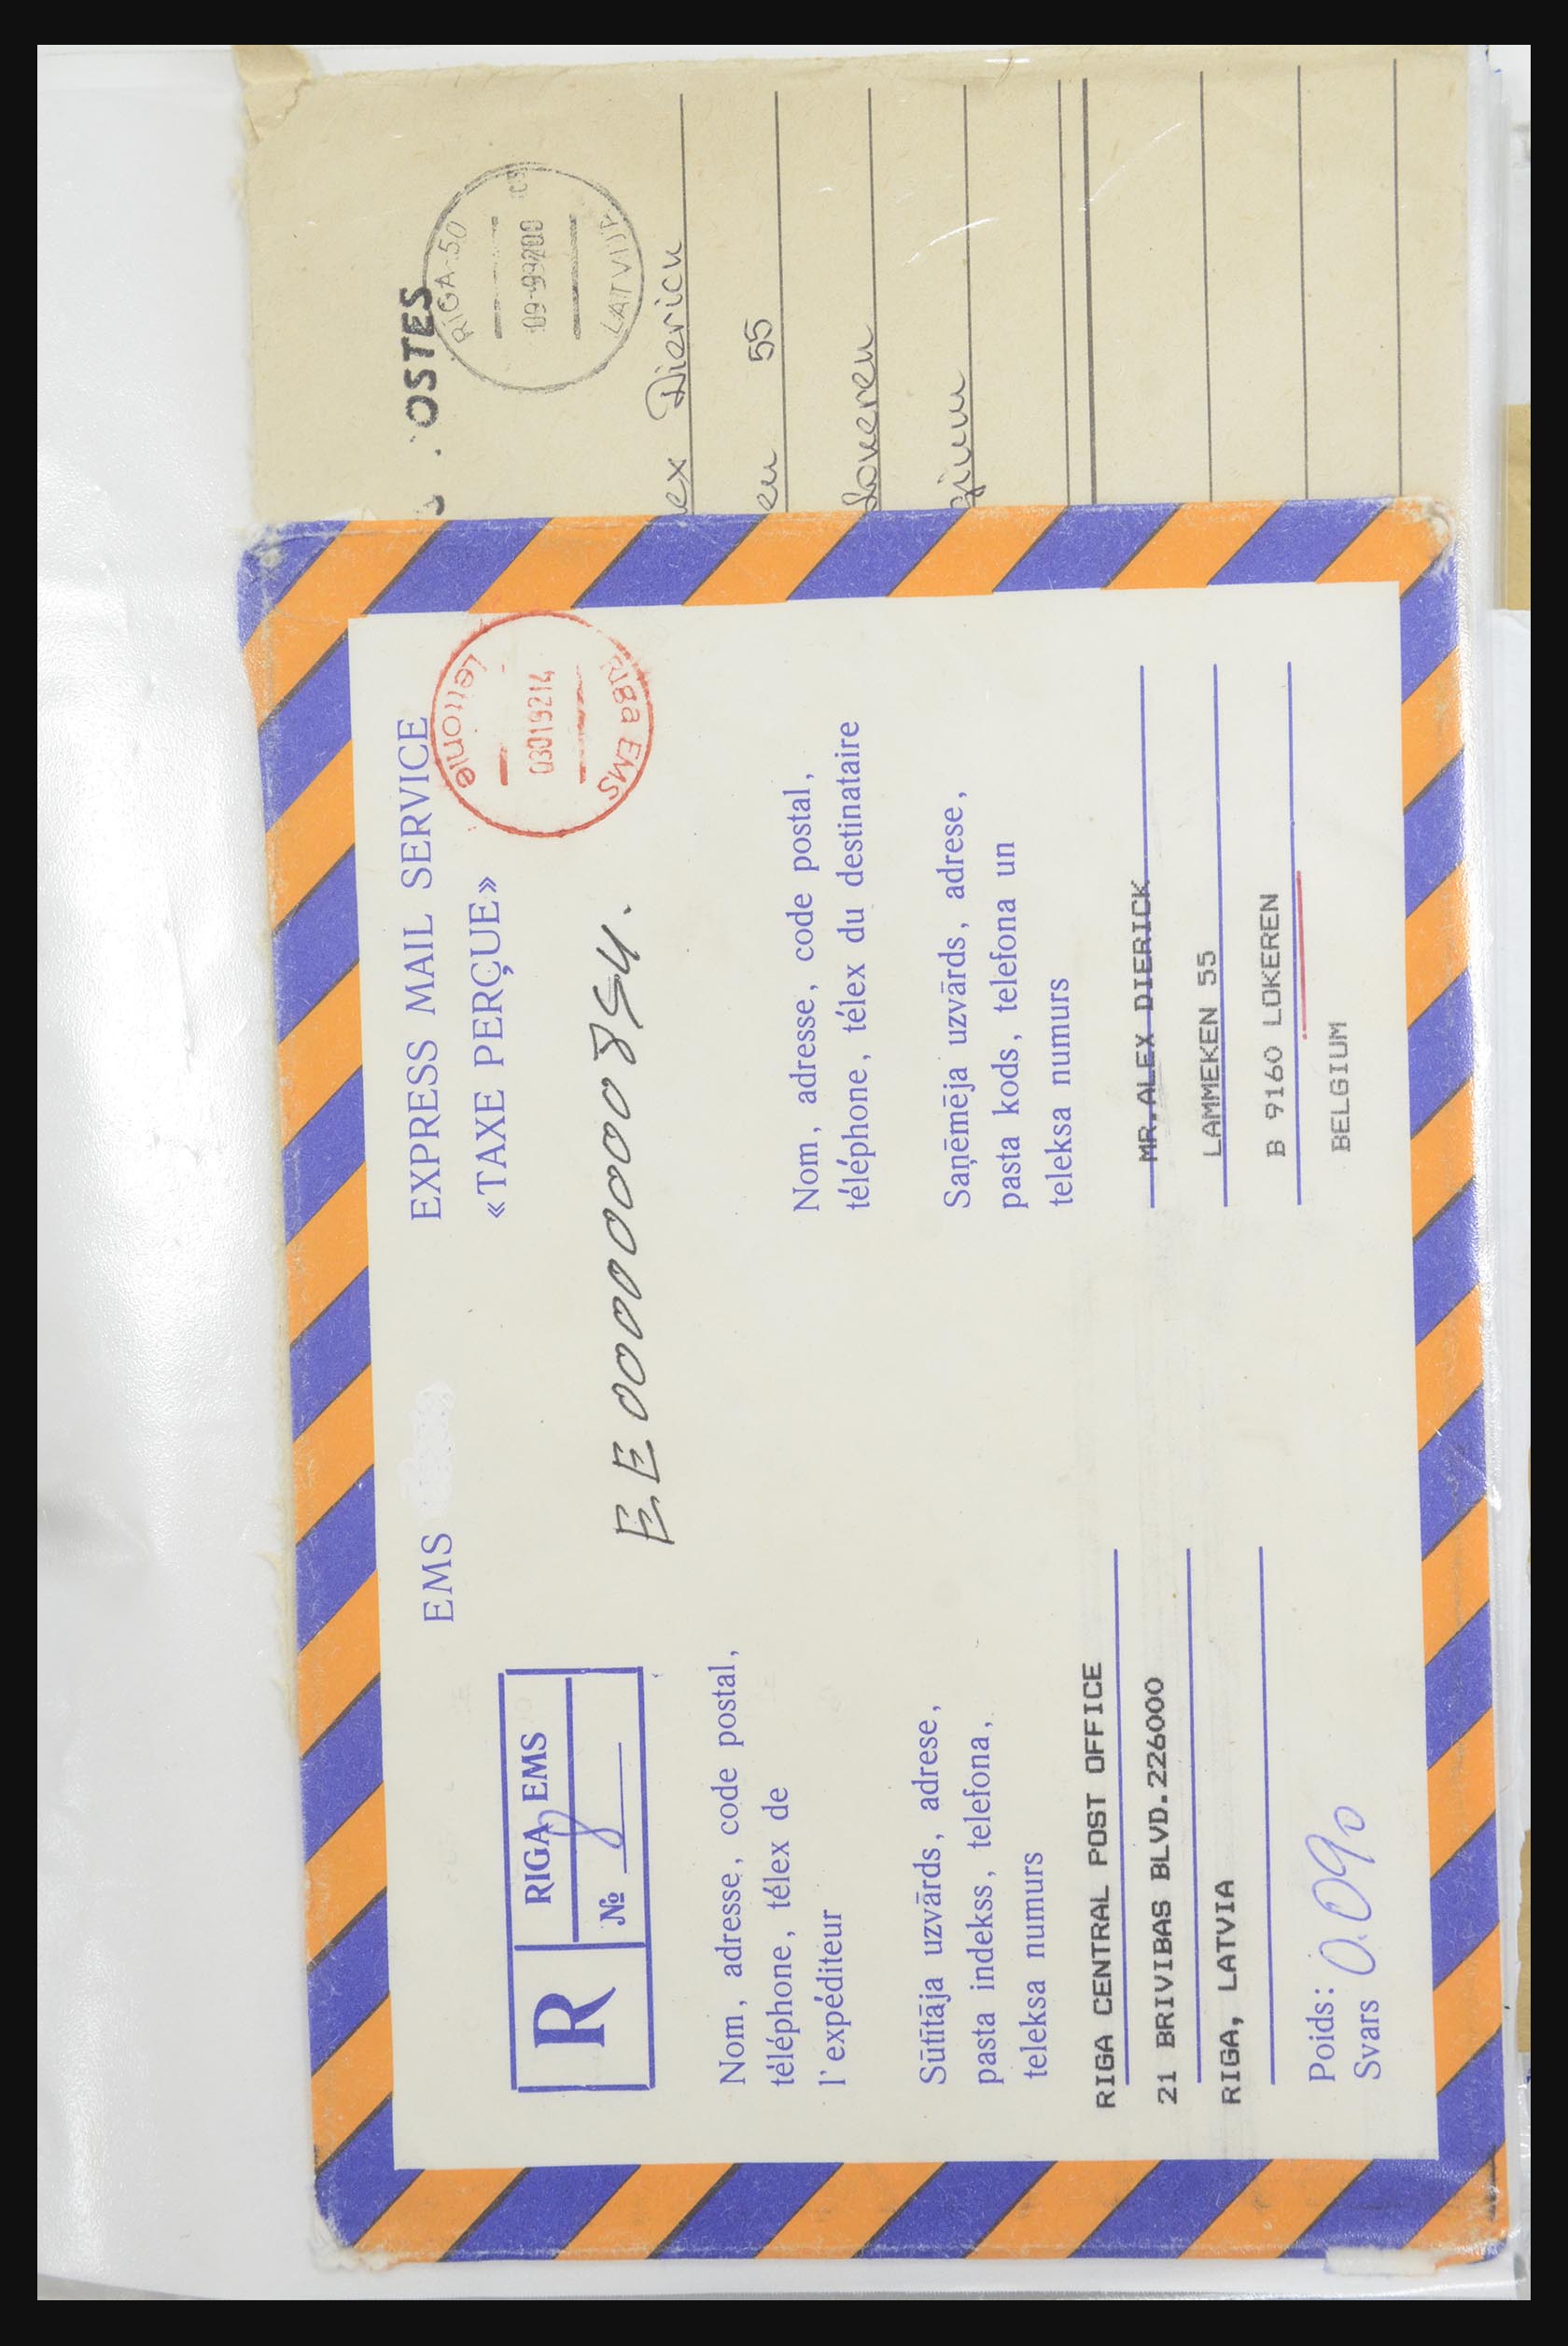 EMS
EXPRESS MAIL SERVICE
«TAXE PERÇUE»
R
RIGA EMS
№ 8
Lettonie
03019214
Riga EMS
Nom, adresse, code postal,
téléphone, télex de
l'expéditeur
Sūtītāja uzvārds, adrese,
pasta indekss, telefona,
teleksa numurs
RIGA CENTRAL POST OFFICE
21 BRIVIBAS BLVD.226000
RIGA, LATVIA
Poids:
Svars 0.090
Nom, adresse, code postal,
téléphone, télex du destinataire
Saņēmēja uzvārds, adrese,
pasta kods, telefona un
teleksa numurs
MR.ALEX DIERICK
LAMMEKEN 55
B 9160 LOKEREN
BELGIUM
OSTES
RIGA-50
LATVIJA
ex Dierick
en 55
Lokeren
gium